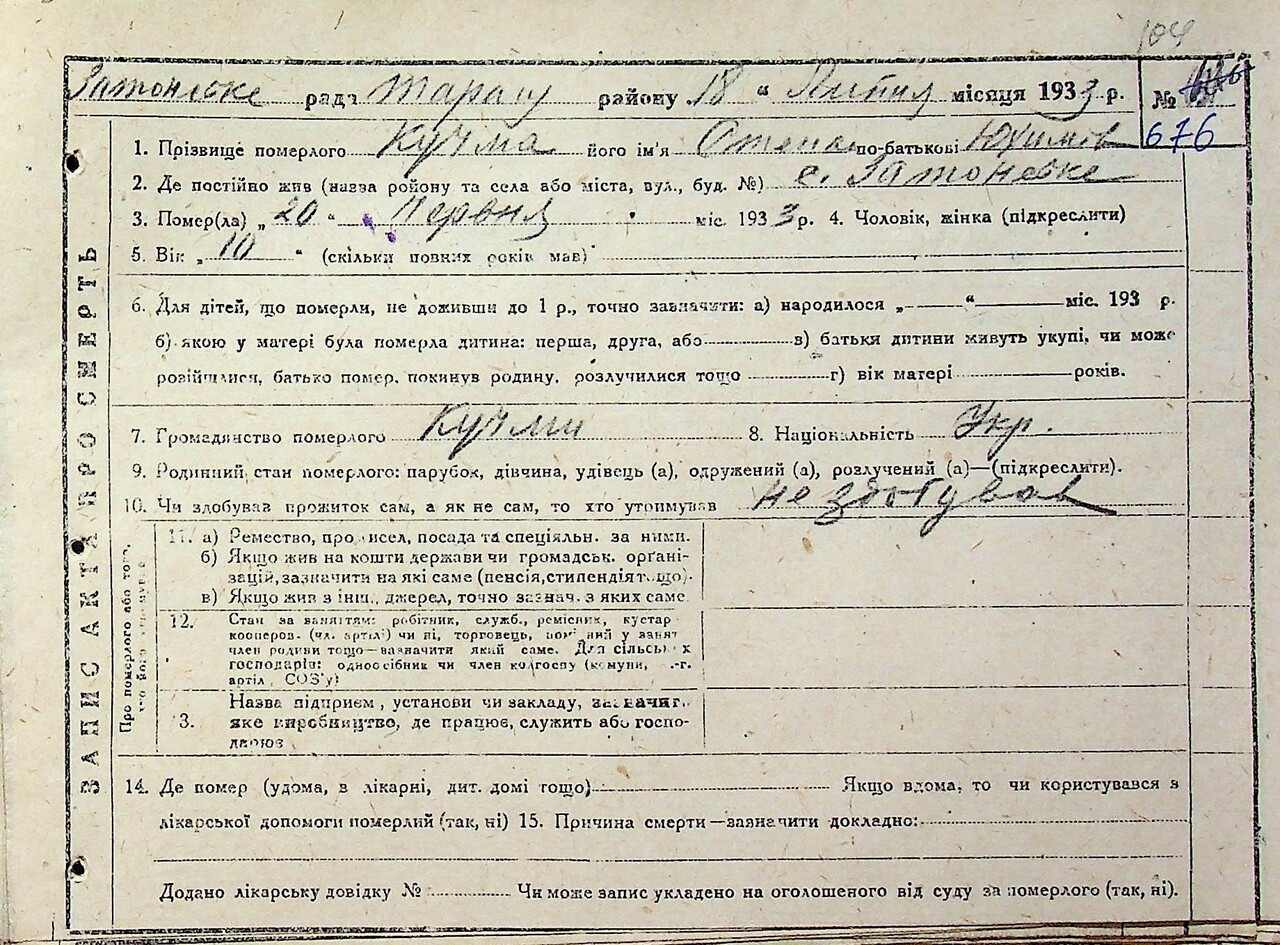 104
Затонське раді Тараш району 18 " Липня місяця 1933 р. №
676
1. Прізвище померлого Кучма його ім'я Степа по-батькові Юхимов
2. Де постійно жив (назва ройону та села або міста, вул., буд. №) с. Затонське
3. Помер(ла) „ 20 " Червня міс. 1933 р. 4. Чоловік, жінка (підкреслити)
5. Вік „ 10 " (скільки повних років мав)
6. Для дітей, що померли, не доживши до 1 р., точно зазначити: а) народилося „ " міс. 193 р.
б) якою у матері була померла дитина: перша, друга, або в) батьки дитини живуть укупі, чи може
розійшлися, батько помер, покинув родину, розлучилися тощо г) вік матері років.
7. Громадянство померлого Кучми 8. Національність Укр.
9. Родинний стан померлого: парубок, дівчина, удівець (а), одружений (а), розлучений (а)—(підкреслити).
10. Чи здобував прожиток сам, а як не сам, то хто утримував не здобував
ЗАПИС АКТА ПРО СМЕРТЬ
Про померлого або того,
хто його утримував
11. а) Ремество, промисел, посада та спеціяльн. за ними.
б) Якщо жив на кошти держави чи громадськ. орґані-
зацій, зазначити на які саме (пенсія, стипендія тощо).
в) Якщо жив з інш. джерел, точно зазнач. з яких саме
12. Стан за заняттям: робітник, служб., ремісник, кустар
кооперов. (чл. артілі) чи ні, торговець, помічний у занят
член родини тощо—зазначити який саме. Для сільських
господарів: одноосібник чи член колгоспу (комуни, с.-г.
артіл, СОЗ'у)
Назва підприєм, установи чи закладу, зазначит.
3. яке виробництво, де працює, служить або госпо-
дарює
14. Де помер (удома, в лікарні, дит. домі тощо) Якщо вдома, то чи користувався з
лікарської допомоги померлий (так, ні) 15. Причина смерти—зазначити докладно:
Додано лікарську довідку № Чи може запис укладено на оголошеного від суду за померлого (так, ні).